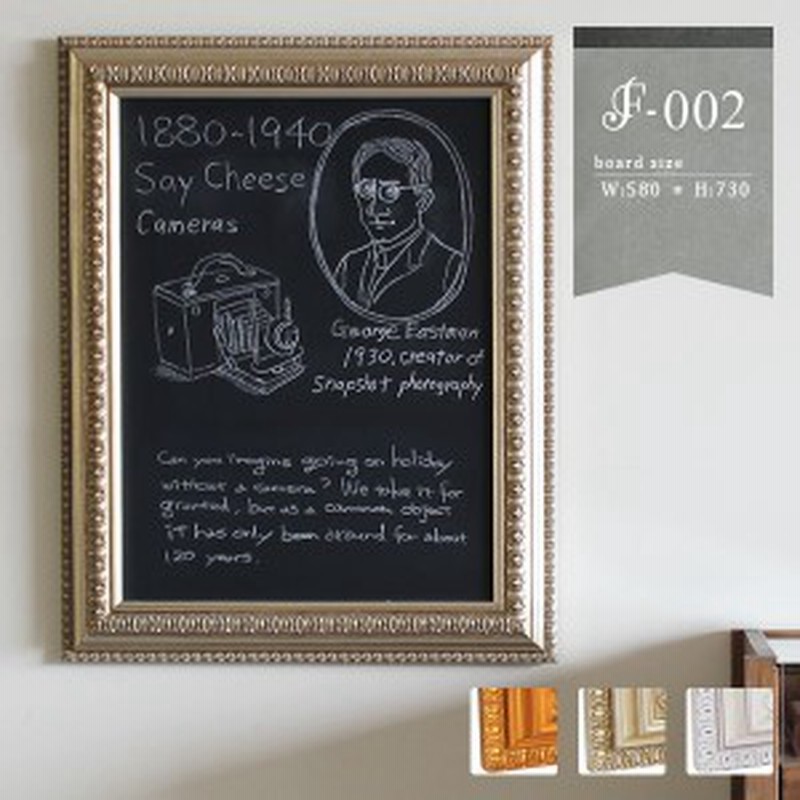 1880-1940
Say Cheese
Cameras
George Eastman
1930, creator of
Snapshot photography
Can you imagine going on holiday
without a camera? We take it for
granted, but as a common object
it has only been around for about
120 years.
F-002
board size
W:580 * H:730